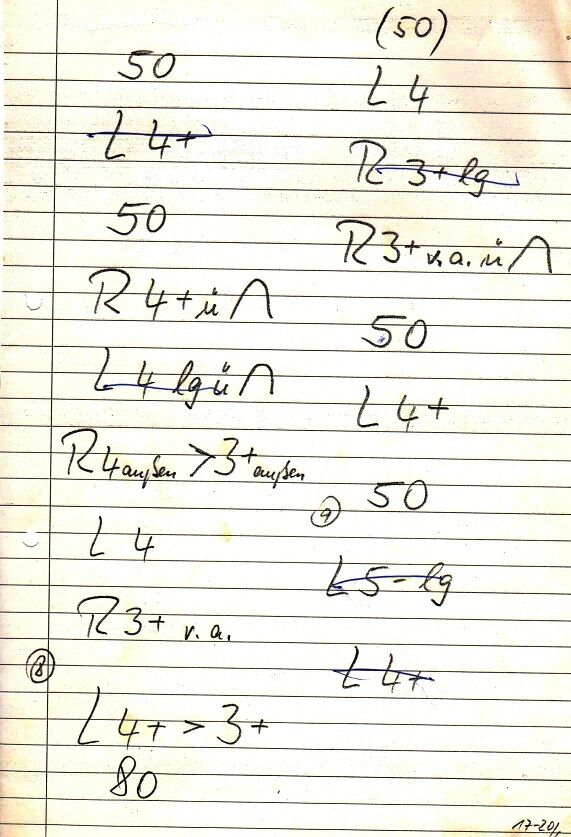 50
L 4+
50
R 4+ ü ∩
L 4 lg ü ∩
R 4 außen > 3+ außen
L 4
R 3+ v. a.
8
L 4+ > 3+
80
(50)
L 4
R 3+ lg
R 3+ v. a. ü ∩
50
L 4+
50
9
L 5- lg
L 4+